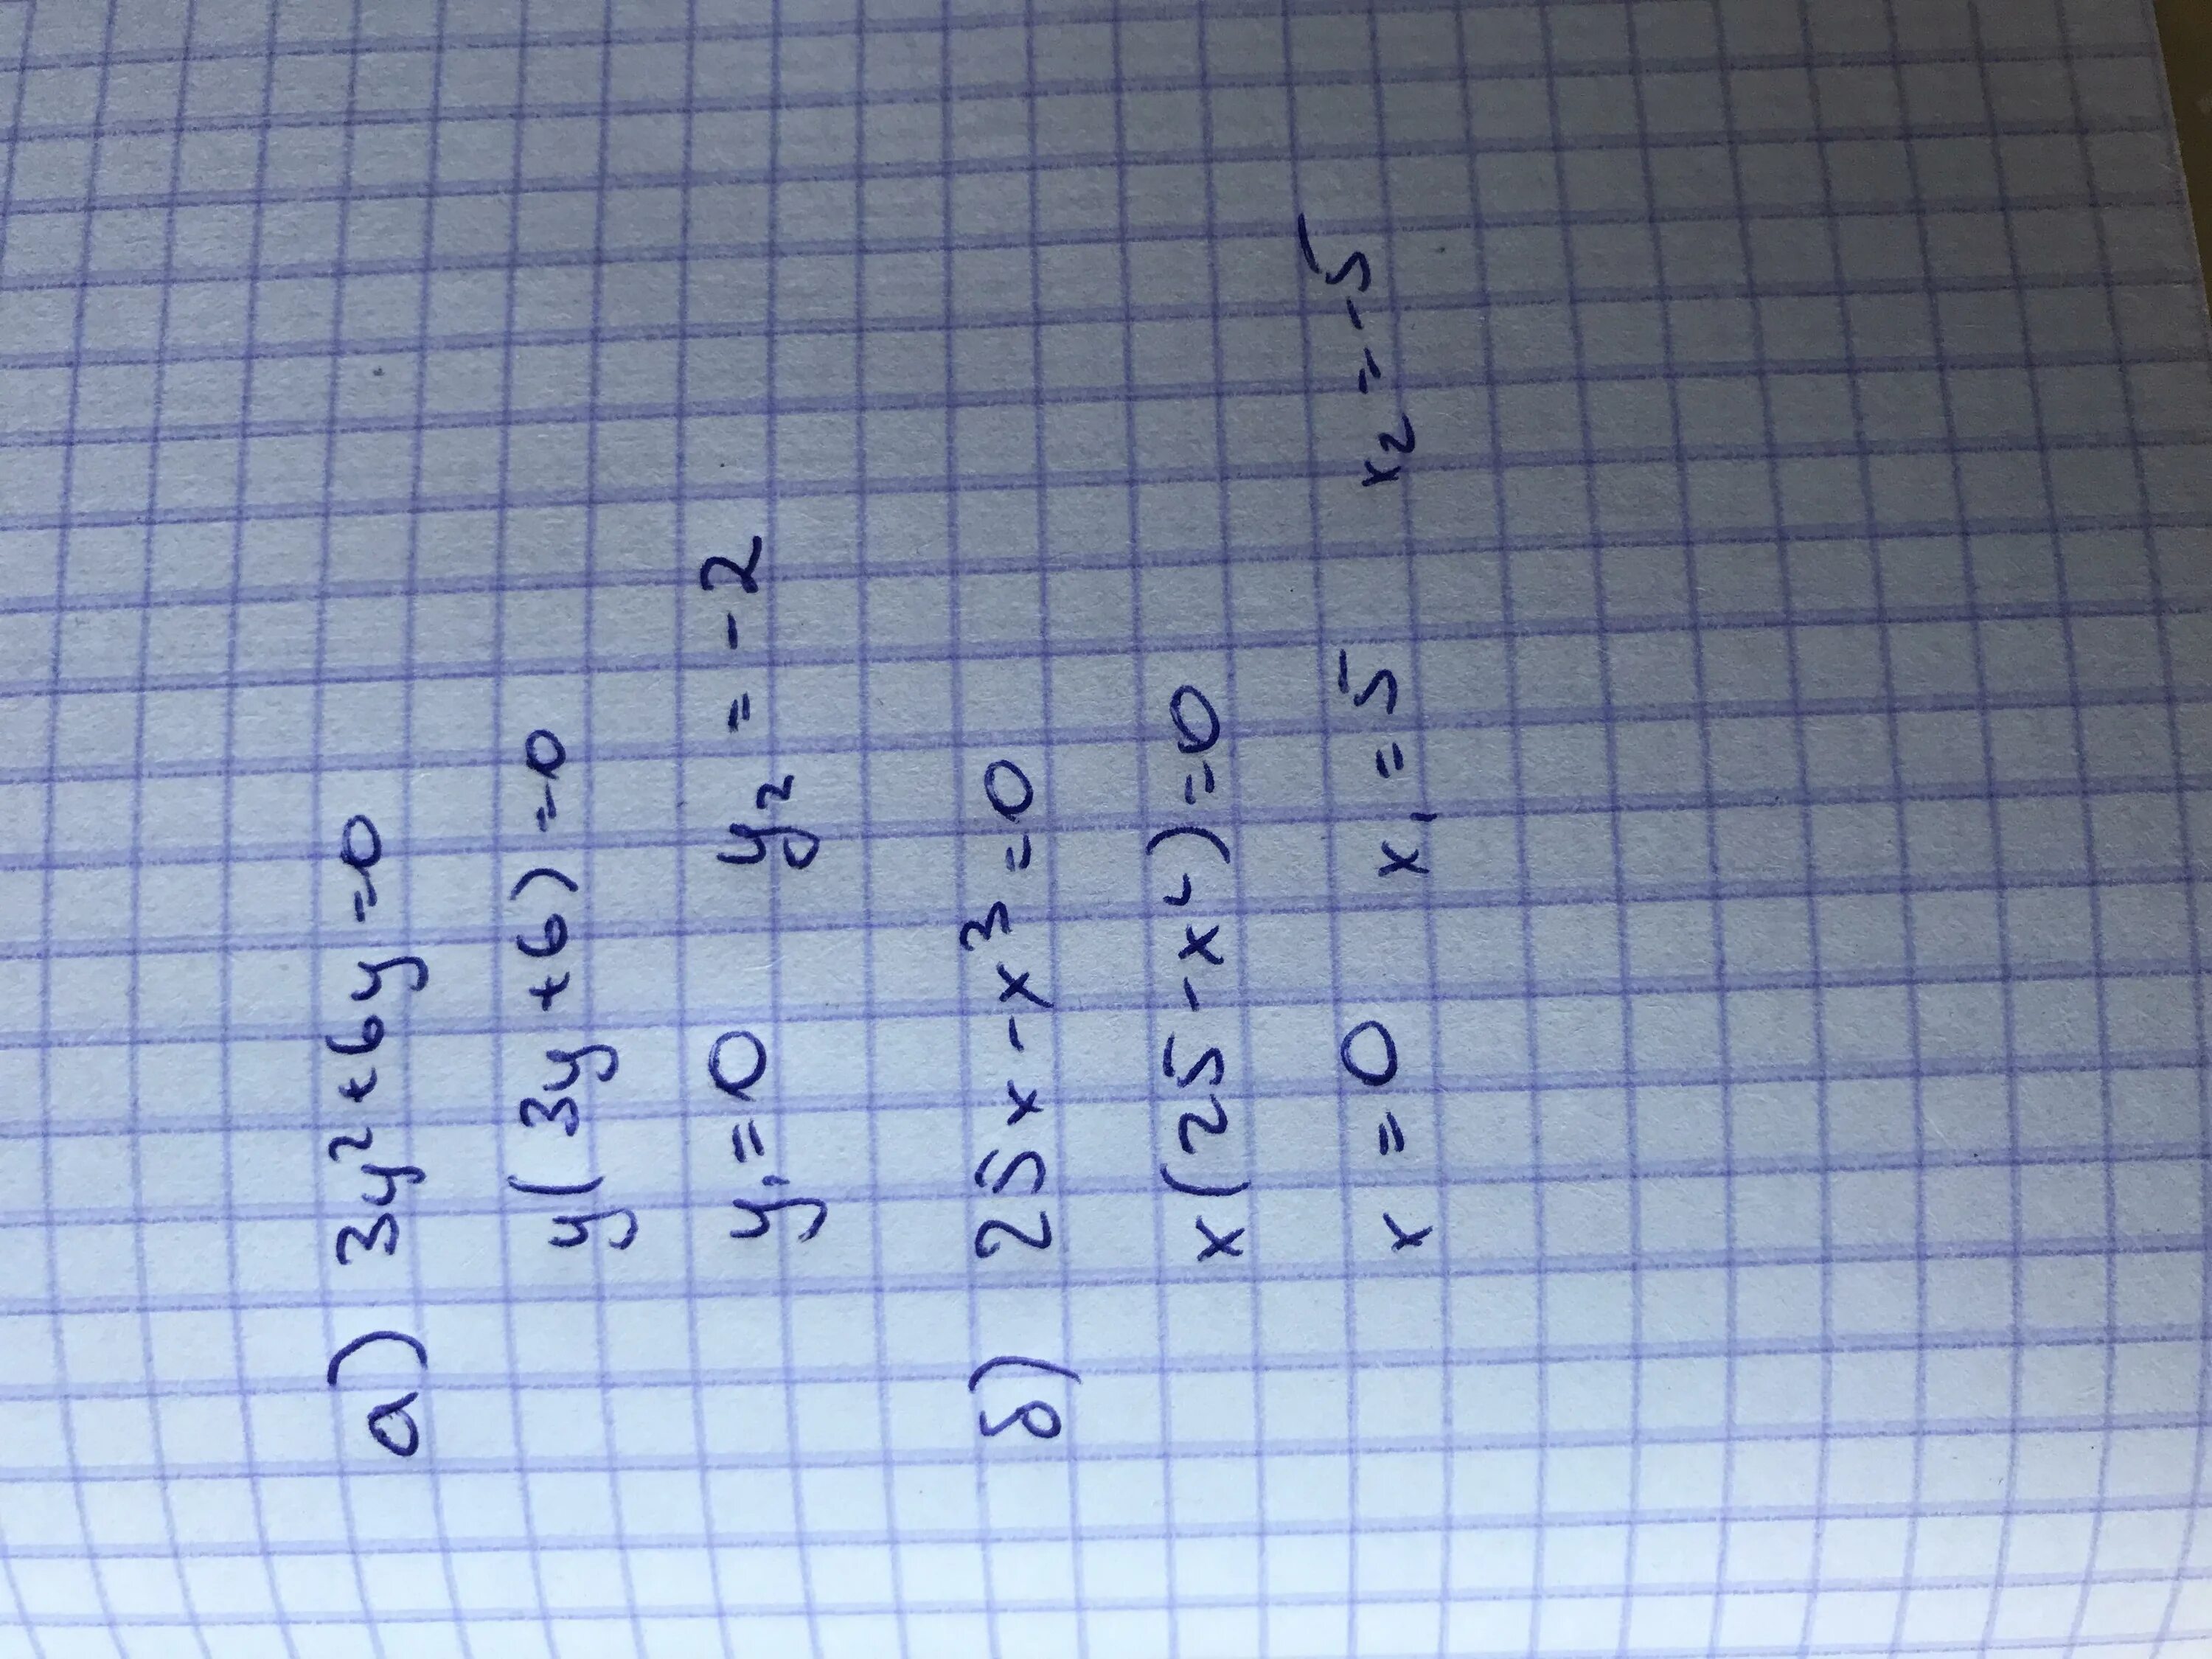 а) 3y²+6y=0
y(3y+6)=0
y₁=0 y₂=-2
б) 25x-x³=0
x(25-x²)=0
x=0 x₁=5 x₂=-5